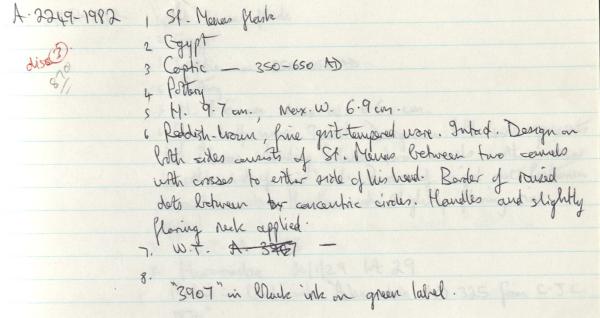 A. 2249-1982
1 St. Menas flask
2 Egypt
3 Coptic — 350-650 AD
4 Pottery
5 H. 9.7 cm., Max. W. 6.9 cm.
6 Reddish-brown, fine grit-tempered ware. Intact. Design on
both sides consists of St. Menas between two camels
with crosses to either side of his head. Border of raised
dots between concentric circles. Handles and slightly
flaring neck applied.
7. W.T. A. 3907 —
8.
"3907" in black ink on green label.
disc 3